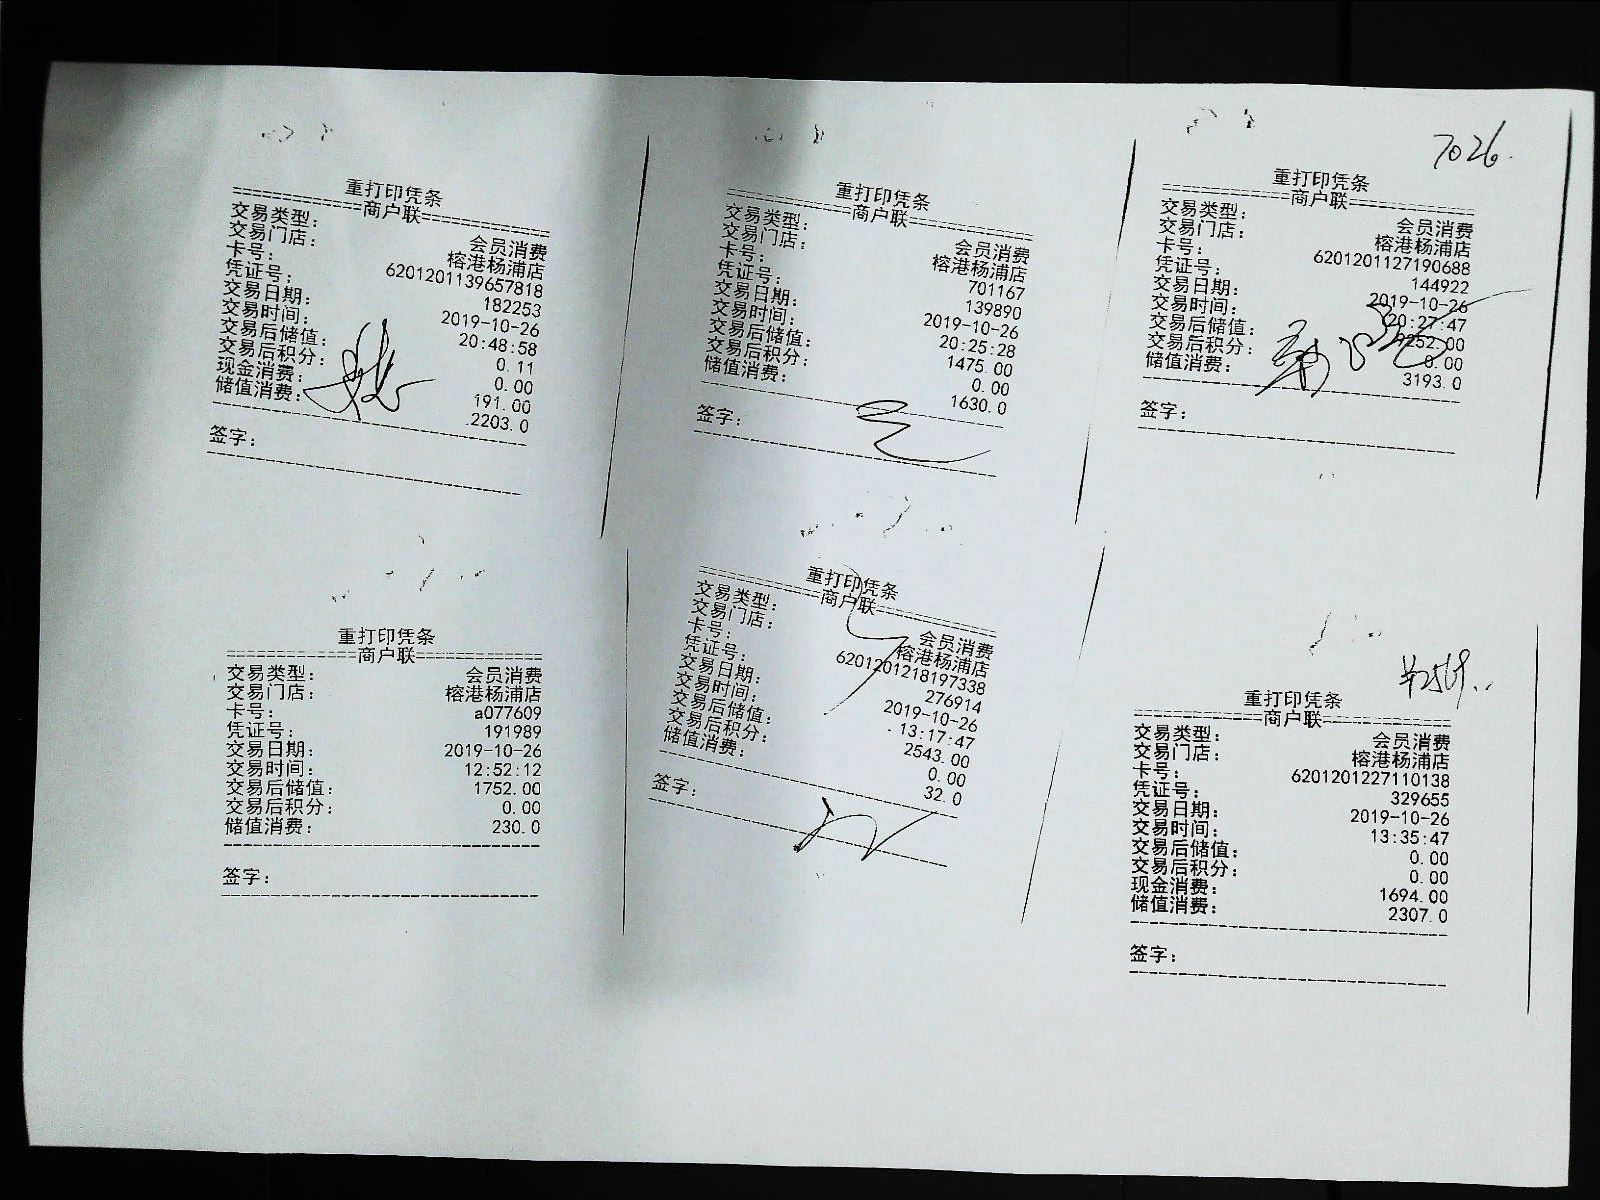 重打印凭条
==========商户联==========
交易类型: 会员消费
交易门店: 榕港杨浦店
卡号: 6201201139657818
凭证号: 182253
交易日期: 2019-10-26
交易时间: 20:48:58
交易后储值: 0.11
交易后积分: 0.00
现金消费: 191.00
储值消费: 2203.0
签字:
重打印凭条
==========商户联==========
交易类型: 会员消费
交易门店: 榕港杨浦店
卡号: 701167
凭证号: 139890
交易日期: 2019-10-26
交易时间: 20:25:28
交易后储值: 1475.00
交易后积分: 0.00
储值消费: 1630.0
签字:
7026
重打印凭条
==========商户联==========
交易类型: 会员消费
交易门店: 榕港杨浦店
卡号: 6201201127190688
凭证号: 144922
交易日期: 2019-10-26
交易时间: 20:27:47
交易后储值:
交易后积分: 0.00
储值消费: 3193.0
签字:
重打印凭条
==========商户联==========
交易类型: 会员消费
交易门店: 榕港杨浦店
卡号: a077609
凭证号: 191989
交易日期: 2019-10-26
交易时间: 12:52:12
交易后储值: 1752.00
交易后积分: 0.00
储值消费: 230.0
签字:
重打印凭条
==========商户联==========
交易类型: 会员消费
交易门店: 榕港杨浦店
卡号: 6201201218197338
凭证号: 276914
交易日期: 2019-10-26
交易时间: 13:17:47
交易后储值: 2543.00
交易后积分: 0.00
储值消费: 32.0
签字:
重打印凭条
==========商户联==========
交易类型: 会员消费
交易门店: 榕港杨浦店
卡号: 6201201227110138
凭证号: 329655
交易日期: 2019-10-26
交易时间: 13:35:47
交易后储值: 0.00
交易后积分: 0.00
现金消费: 1694.00
储值消费: 2307.0
签字: